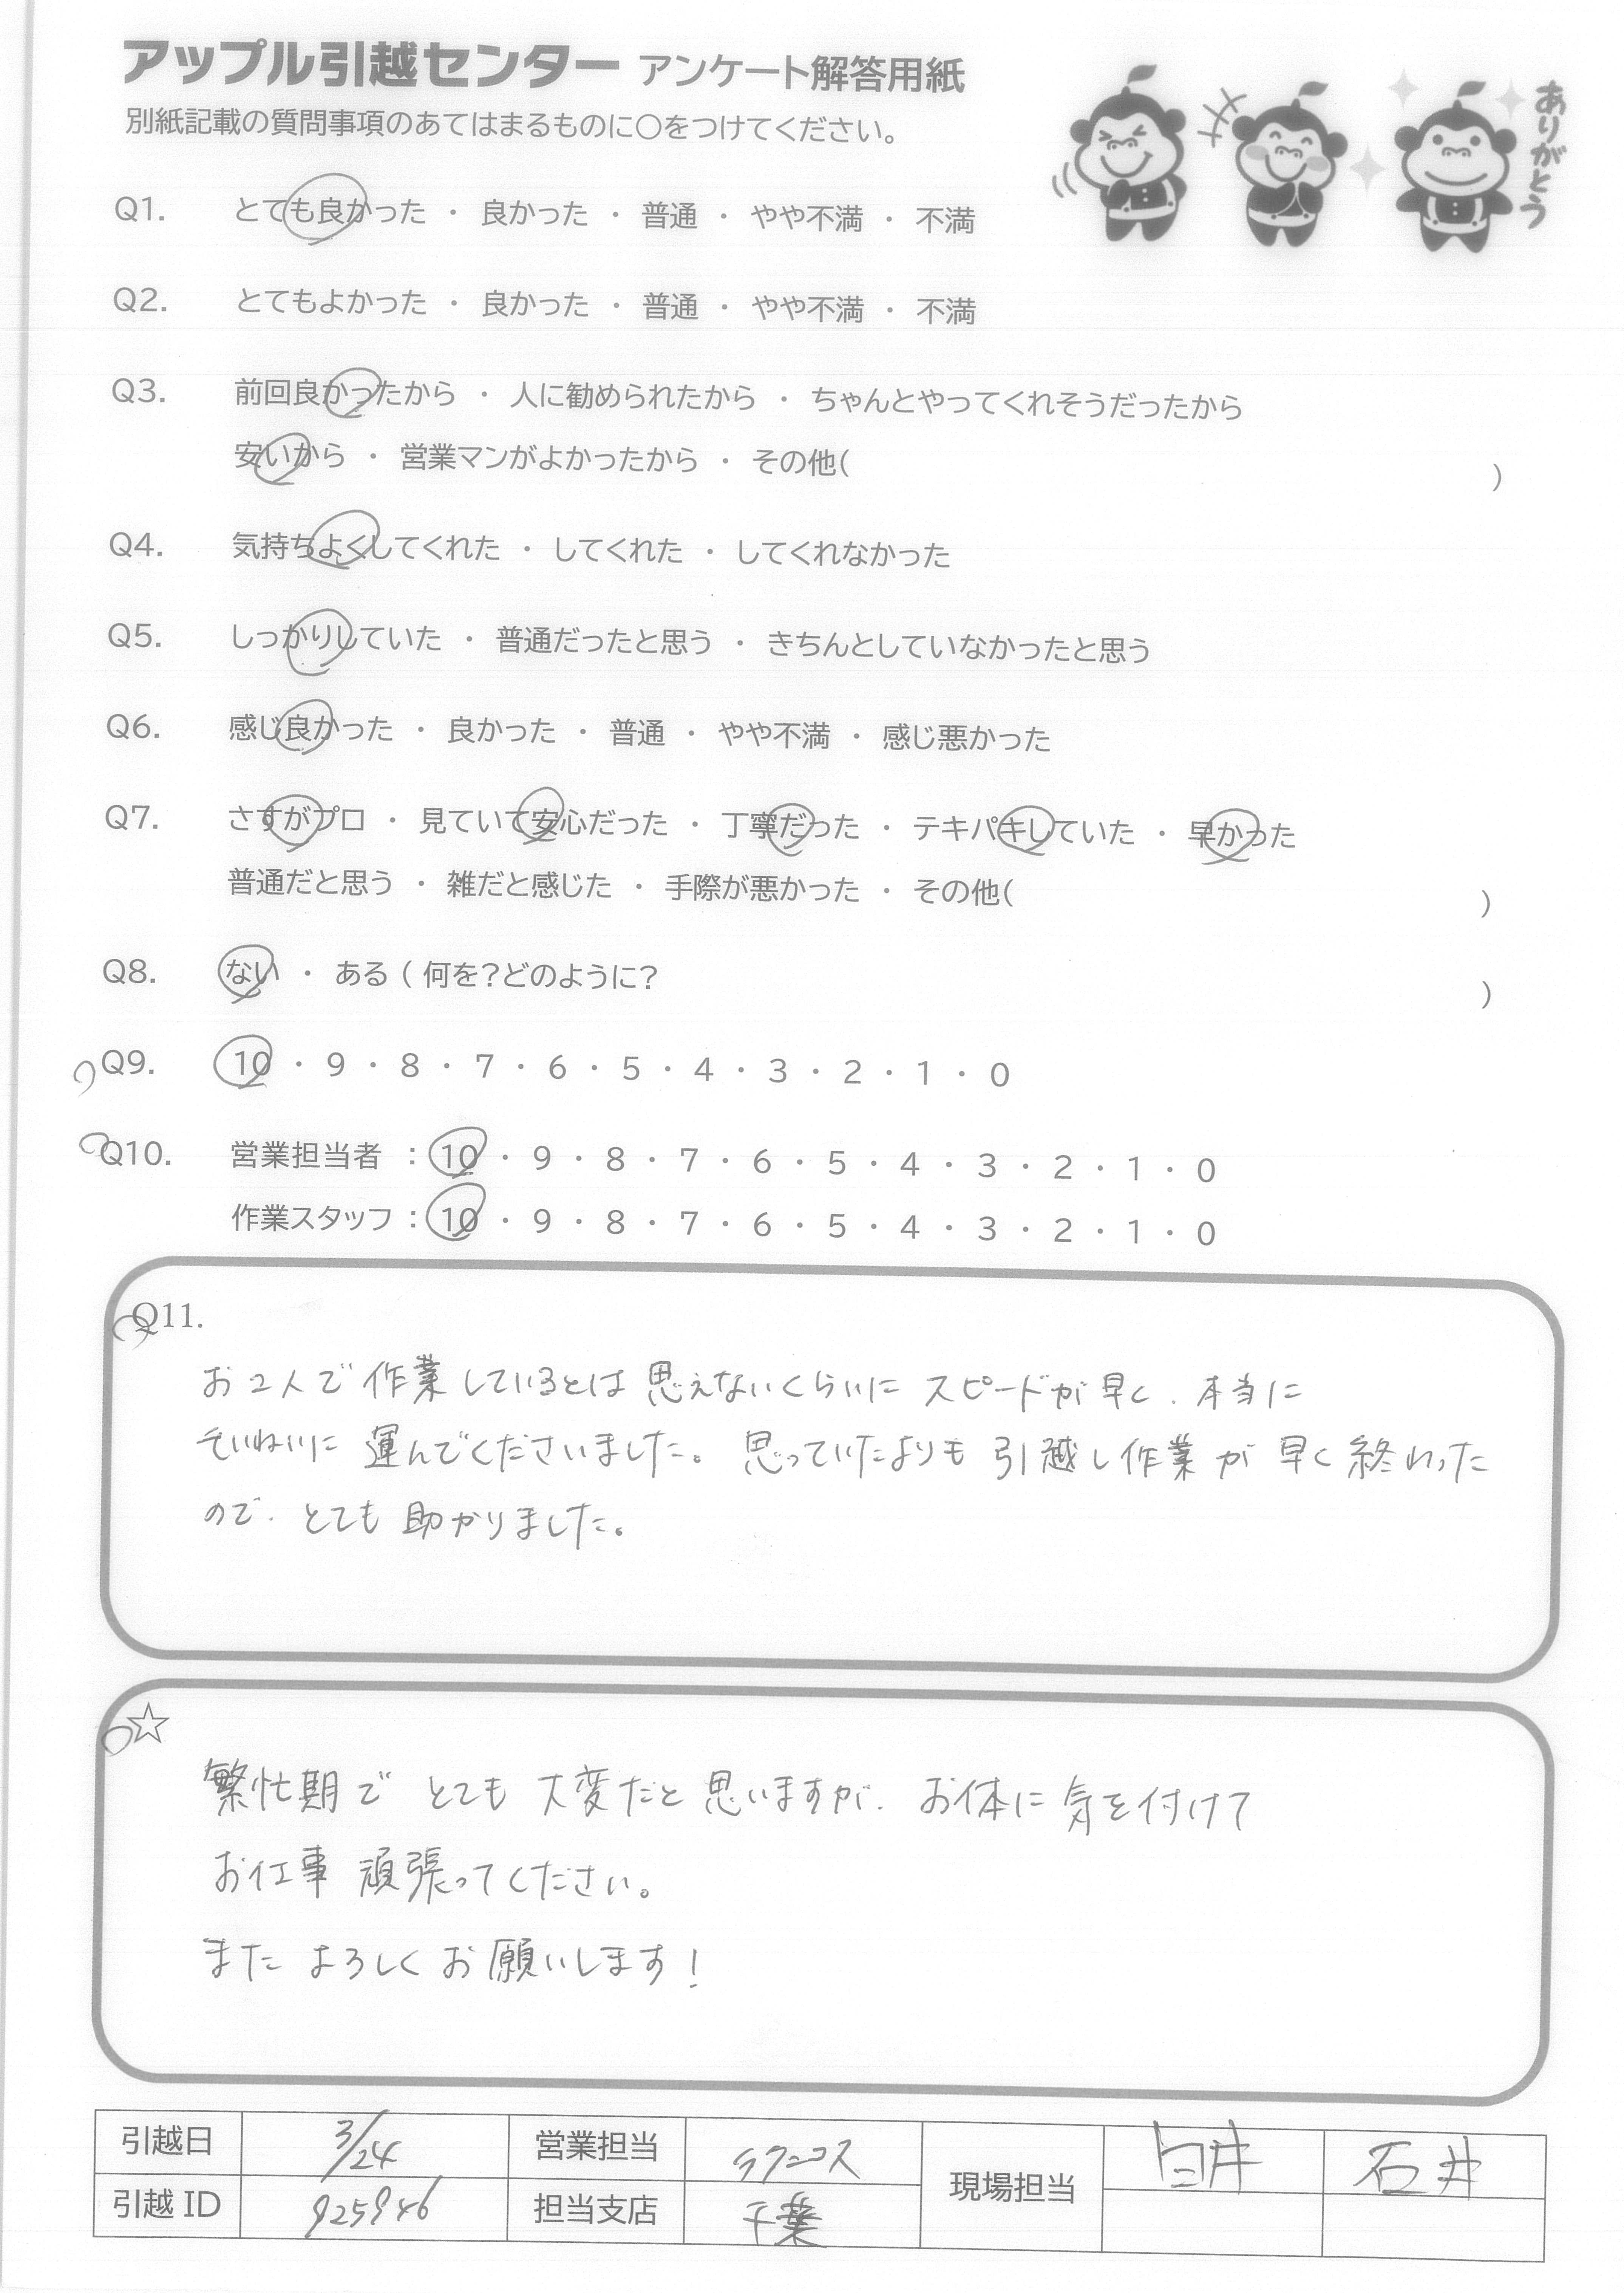 アップル引越センター アンケート解答用紙
別紙記載の質問事項のあてはまるものに○をつけてください。
ありがとう
Q1. とても良かった ・ 良かった ・ 普通 ・ やや不満 ・ 不満
Q2. とてもよかった ・ 良かった ・ 普通 ・ やや不満 ・ 不満
Q3. 前回良かったから ・ 人に勧められたから ・ ちゃんとやってくれそうだったから
安いから ・ 営業マンがよかったから ・ その他( )
Q4. 気持ちよくしてくれた ・ してくれた ・ してくれなかった
Q5. しっかりしていた ・ 普通だったと思う ・ きちんとしていなかったと思う
Q6. 感じ良かった ・ 良かった ・ 普通 ・ やや不満 ・ 感じ悪かった
Q7. さすがプロ ・ 見ていて安心だった ・ 丁寧だった ・ テキパキしていた ・ 早かった
普通だと思う ・ 雑だと感じた ・ 手際が悪かった ・ その他( )
Q8. ない ・ ある ( 何を?どのように? )
Q9. 10 ・ 9 ・ 8 ・ 7 ・ 6 ・ 5 ・ 4 ・ 3 ・ 2 ・ 1 ・ 0
Q10. 営業担当者 : 10 ・ 9 ・ 8 ・ 7 ・ 6 ・ 5 ・ 4 ・ 3 ・ 2 ・ 1 ・ 0
作業スタッフ : 10 ・ 9 ・ 8 ・ 7 ・ 6 ・ 5 ・ 4 ・ 3 ・ 2 ・ 1 ・ 0
Q11.
お2人で作業しているとは思えないくらいにスピードが早く、本当に
ていねいに運んでくださいました。思っていたよりも引越し作業が早く終わった
ので、とても助かりました。
☆
繁忙期でとても大変だと思いますが、お体に気を付けて
お仕事頑張ってください。
またよろしくお願いします!
引越日 3/24 営業担当 現場担当 臼井 石井
引越ID 925946 担当支店 千葉